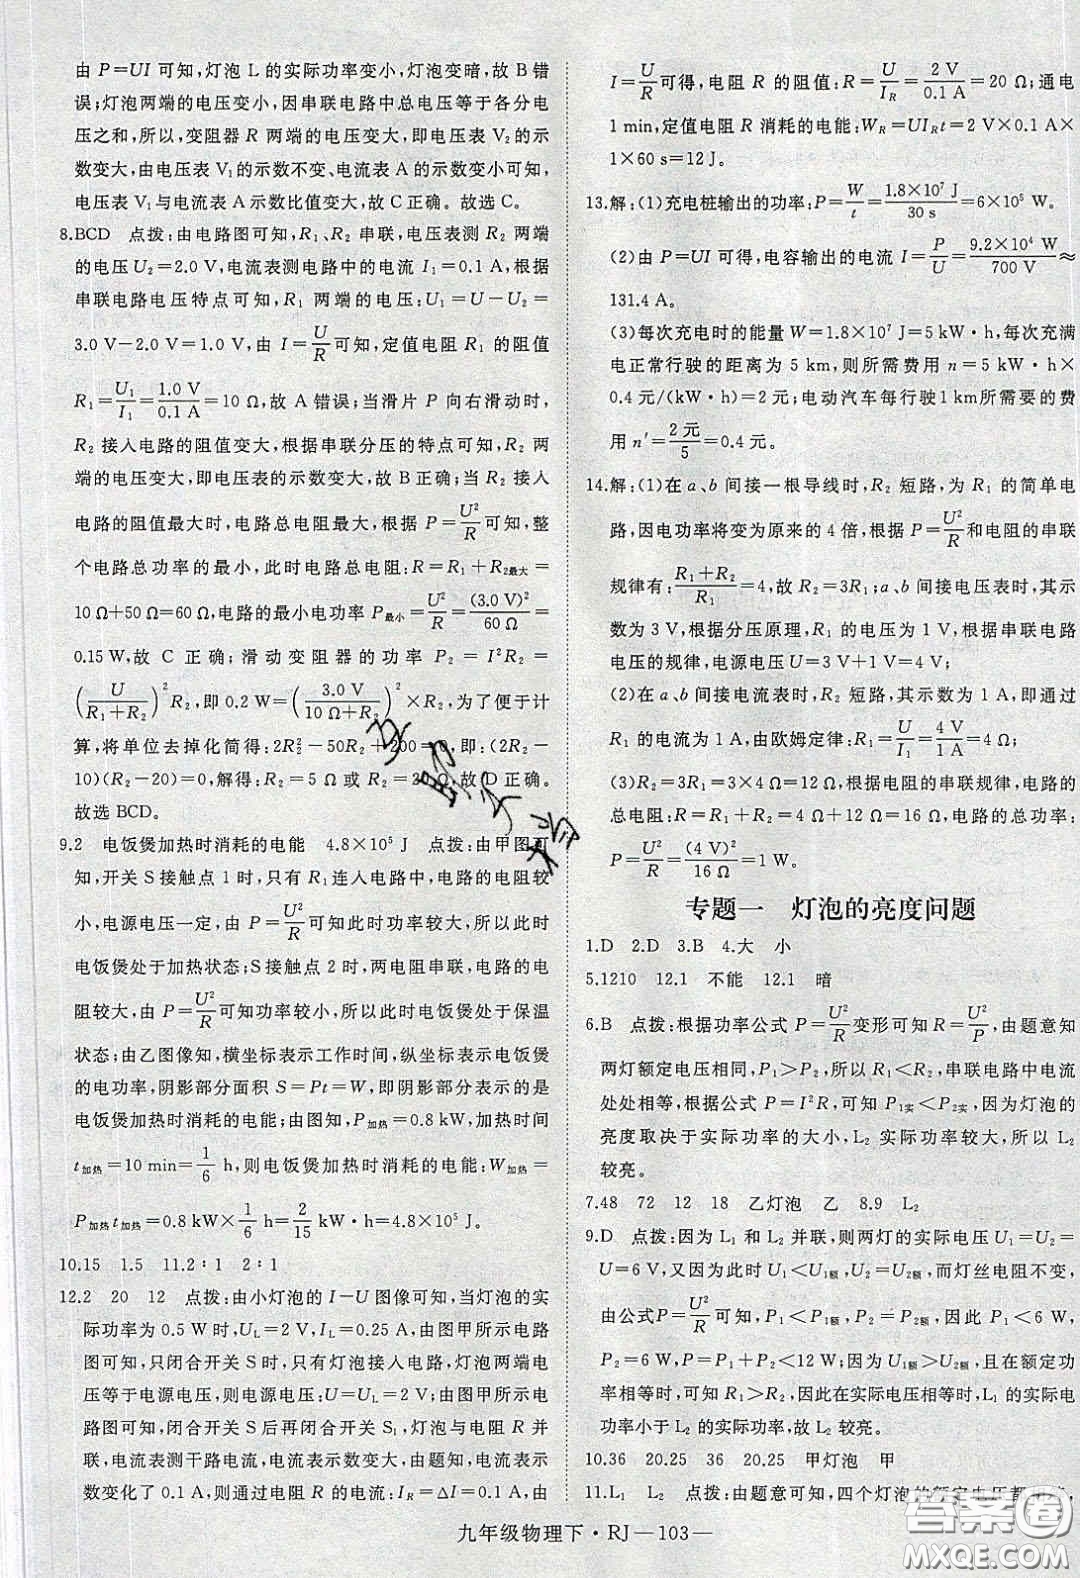 由 P=UI 可知,灯泡 L 的实际功率变小,灯泡变暗,故 B 错
误;灯泡两端的电压变小,因串联电路中总电压等于各分电
压之和,所以,变阻器 R 两端的电压变大,即电压表 V₂ 的示
数变大,由电压表 V₁ 的示数不变、电流表 A 的示数变小可知,
电压表 V₁与电流表 A 示数比值变大,故 C 正确。故选 C。
8.BCD 点拨:由电路图可知,R₁、R₂ 串联,电压表测 R₂ 两端
的电压 U₂=2.0 V,电流表测电路中的电流 I₁=0.1 A,根据
串联电路电压特点可知,R₁ 两端的电压:U₁=U-U₂=
3.0 V-2.0 V=1.0 V,由 I=U/R 可知,定值电阻 R₁ 的阻值
R₁=U₁/I₁=1.0 V/0.1 A=10 Ω,故 A 错误;当滑片 P 向右滑动时,
R₂ 接入电路的阻值变大,根据串联分压的特点可知,R₂ 两
端的电压变大,即电压表的示数变大,故 B 正确;当 R₂ 接入
电路的阻值最大时,电路总电阻最大,根据 P=U²/R 可知,整
个电路总功率的最小,此时电路总电阻:R=R₁+R₂最大=
10 Ω+50 Ω=60 Ω,电路的最小电功率 P最小=U²/R=(3.0 V)²/60 Ω=
0.15 W,故 C 正确;滑动变阻器的功率 P₂=I²R₂=
(U/(R₁+R₂))²R₂,即 0.2 W=(3.0 V/(10 Ω+R₂))²×R₂,为了便于计
算,将单位去掉化简得:2R₂²-50R₂+200=0,即:(2R₂-
10)(R₂-20)=0,解得:R₂=5 Ω 或 R₂=20 Ω,故 D 正确。
故选 BCD。
9.2 电饭煲加热时消耗的电能 4.8×10⁵ J 点拨:由甲图可
知,开关 S 接触点 1 时,只有 R₁连入电路中,电路的电阻较
小,电源电压一定,由 P=U²/R可知功率较大,所以此时
电饭煲处于加热状态;S 接触点 2 时,两电阻串联,电路的电
阻较大,由 P=U²/R可知功率较小,所以此时电饭煲处于保温
状态;由乙图像知,横坐标表示工作时间,纵坐标表示电饭煲
的电功率,阴影部分面积 S=Pt=W,即阴影部分表示的是
电饭煲加热时消耗的电能;由图知,P加热=0.8 kW,加热时间
t加热=10 min=1/6 h,则电饭煲加热时消耗的电能:W加热=
P加热t加热=0.8 kW×1/6 h=2/15 kW·h=4.8×10⁵ J。
10.15 1.5 11.2∶1 2∶1
12.2 20 12 点拨:由小灯泡的 I-U 图像可知,当灯泡的实
际功率为 0.5 W 时,U_L=2 V,I_L=0.25 A,由图甲所示电路
图可知,只闭合开关 S 时,只有灯泡接入电路,灯泡两端电
压等于电源电压,则电源电压:U=U_L=2 V;由图甲所示电
路图可知,闭合开关 S 后再闭合开关 S₁,灯泡与电阻 R 并
联,电流表测干路电流,灯泡电流不变,由于此时电流表示
数变化了 0.1 A,则通过电阻 R 的电流:I_R=ΔI=0.1 A,由
I=U/R 可得,电阻 R 的阻值:R=U/I_R=2 V/0.1 A=20 Ω;通电
1 min,定值电阻 R 消耗的电能:W_R=UI_Rt=2 V×0.1 A×
1×60 s=12 J。
13.解:(1)充电桩输出的功率:P=W/t=1.8×10⁷ J/30 s=6×10⁵ W。
(2)由 P=UI 可得,电容输出的电流 I=P/U=9.2×10⁴ W/700 V≈
131.4 A。
(3)每次充电时的能量 W=1.8×10⁷ J=5 kW·h,每次充满
电正常行驶的距离为 5 km,则所需费用 n=5 kW·h×
0.4 元/(kW·h)=2 元;电动汽车每行驶 1 km所需要的费
用 n′=2 元/5=0.4 元。
14.解:(1)在 a、b 间接一根导线时,R₂ 短路,为 R₁ 的简单电
路,因电功率将变为原来的 4 倍,根据 P=U²/R和电阻的串联
规律有:(R₁+R₂)/R₁=4,故 R₂=3R₁;a、b 间接电压表时,其示
数为 3 V,根据分压原理,R₁ 的电压为 1 V,根据串联电路
电压的规律,电源电压 U=3 V+1 V=4 V;
(2)在 a、b 间接电流表时,R₂ 短路,其示数为 1 A,即通过
R₁ 的电流为 1 A,由欧姆定律:R₁=U/I₁=4 V/1 A=4 Ω;
(3)R₂=3R₁=3×4 Ω=12 Ω,根据电阻的串联规律,电路的
总电阻:R串=R₁+R₂=4 Ω+12 Ω=16 Ω,电路的总功率:
P=U²/R=(4 V)²/16 Ω=1 W。
专题一 灯泡的亮度问题
1.D 2.D 3.B 4.大 小
5.1210 12.1 不能 12.1 暗
6.B 点拨:根据功率公式 P=U²/R变形可知 R=U²/P,由题意知
两灯额定电压相同,P₁>P₂,所以 R₁<R₂,串联电路中电流
处处相等,根据公式 P=I²R,可知 P₁实<P₂实,因为灯泡的
亮度取决于实际功率的大小,L₂ 实际功率较大,所以 L₂
较亮。
7.48 72 12 18 乙灯泡 乙 8.9 L₂
9.D 点拨:因为 L₁ 和 L₂ 并联,则两灯的实际电压 U₁=U₂=
U=6 V,又因为此时 U₁<U₁额,U₂=U₂额,而灯丝电阻不变,
由公式P=U²/R可知,P₁<P₁额,P₂=P₂额,因此 P₁<6 W,
P₂=6 W,P=P₁+P₂<12 W;因为 U₁额>U₂额,且在额定功
率相等时,可知 R₁>R₂,因此在实际电压相等时,L₁ 的实际电
功率小于 L₂ 的实际功率,故 L₂ 较亮。
10.36 20.25 36 20.25 甲灯泡 甲
11.L₁ L₂ 点拨:由题意可知,四个灯泡的额定电压都
九年级物理下·RJ—103—
答案圈
MXQE.COM